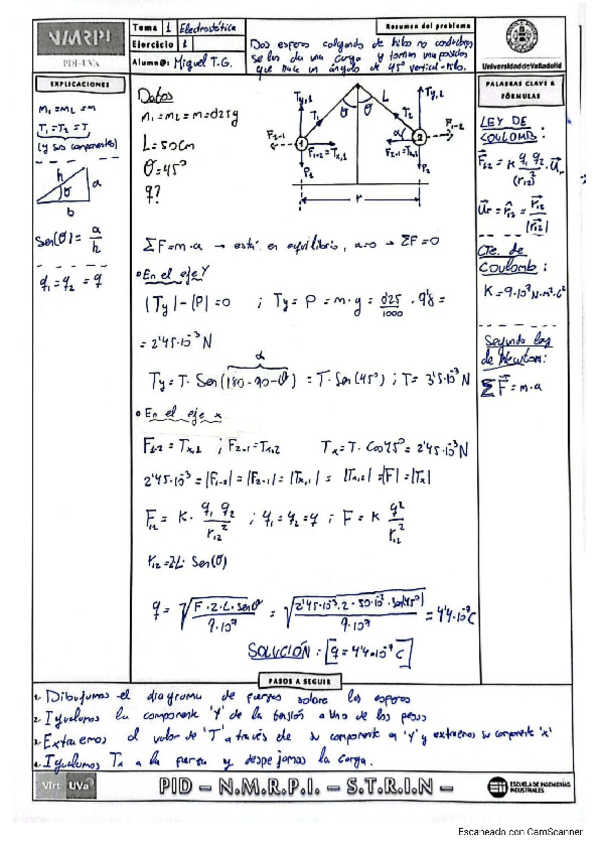 NMRPI
PDI-UVA
Tema 1 Electrostática
Ejercicio 1
Alumn@: Miguel T.G.
Resumen del problema
Dos esferas colgando de hilos no conductores
se les da una carga y toman una posición
que hace un ángulo de 45º vertical-hilo.
Universidad de Valladolid
EXPLICACIONES
m₁=m₂=m
T₁=T₂=T
(y sus componentes)
h
a
θ
b
Sen(θ) = a/h
q₁=q₂=q
Datos
m₁=m₂=m=0'25g
L=50cm
θ=45º
q?
Ty,1
T₁
θ
θ
L
Ty,2
T₂
α
F2-1
1
F1-2=Tx,1
F2-1=Tx,2
2
F1-2
P₁
P₂
r
ΣF=m·a → está en equilibrio, a=0 → ΣF=0
En el eje Y
|Ty|-|P|=0 ; Ty=P=m·g= 0'25/1000 · 9'8 =
= 2'45·10⁻³N
α
Ty=T·Sen(180-90-θ) = T·Sen(45º) ; T= 3'5·10⁻³ N
En el eje x
F1-2=Tx,1 ; F2-1=Tx,2 Tx=T·Cos45º=2'45·10⁻³N
2'45·10⁻³=|F1-2|=|F2-1|=|Tx,1|=|Tx,2|=|F|=|Tx|
F12 = K· q₁ q₂/r12² ; q₁=q₂=q ; F=K q²/r12²
r12=2L·Sen(θ)
q = √(F·2·L·senθ / 9·10⁹) = √(2'45·10⁻³·2·50·10⁻²·sen(45) / 9·10⁹) = 4'4·10⁻⁷C
SOLUCIÓN: q=4'4·10⁻⁷C
PALABRAS CLAVE &
FÓRMULAS
LEY DE
COULOMB:
F12 = K q₁ q₂/(r12)² · Ur
Ur = r̂12 = r12/|r12|
Cte. de
Coulomb:
K=9·10⁹N·m²·C²
Segunda ley
de Newton:
ΣF=m·a
PASOS A SEGUIR
1. Dibujamos el diagrama de fuerzas sobre las esferas
2. Igualamos la componente 'Y' de la tensión a uno de los pesos
3. Extraemos el valor de 'T' a través de su componente en 'Y' y extraemos su componente 'x'
4. Igualamos Tx a la fuerza y despejamos la carga.
Virt UVa
PID – N.M.R.P.I. – S.T.R.I.N –
ESCUELA DE INGENIERÍAS
INDUSTRIALES
Escaneado con CamScanner